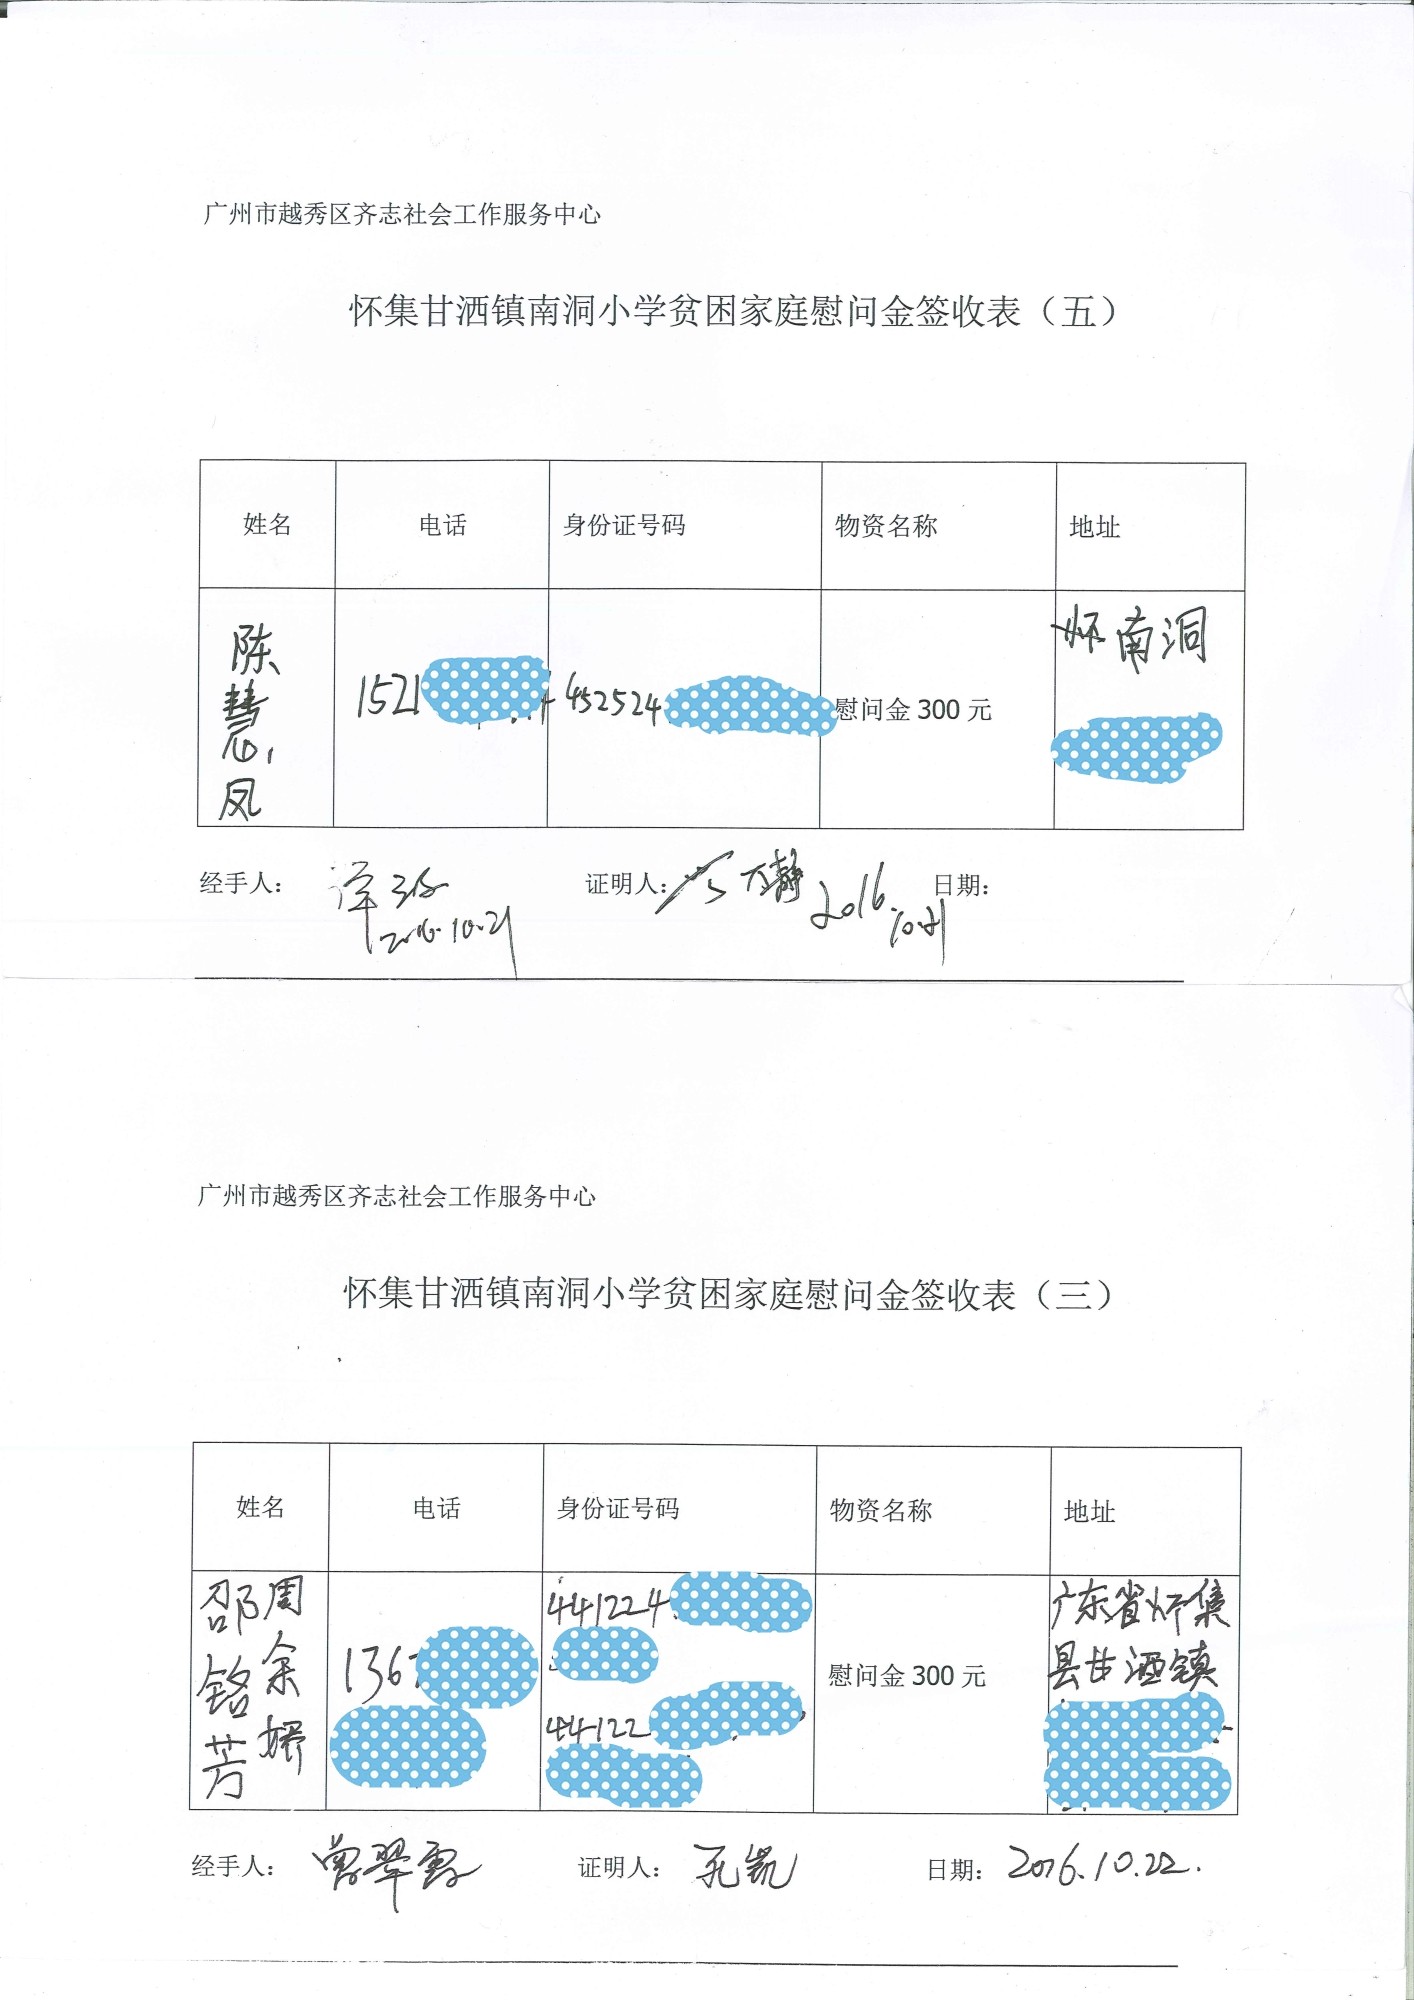 广州市越秀区齐志社会工作服务中心
怀集甘洒镇南洞小学贫困家庭慰问金签收表（五）
姓名 电话 身份证号码 物资名称 地址
陈慧凤 1521 452524 慰问金 300 元 怀南洞
经手人： 2016.10.21 证明人： 2016.10.21 日期：
广州市越秀区齐志社会工作服务中心
怀集甘洒镇南洞小学贫困家庭慰问金签收表（三）
姓名 电话 身份证号码 物资名称 地址
邵铭芳 136 441224 慰问金 300 元 广东省怀集
周余妍 44122 县甘洒镇
经手人： 曾翠霞 证明人： 孔凯 日期： 2016.10.22.